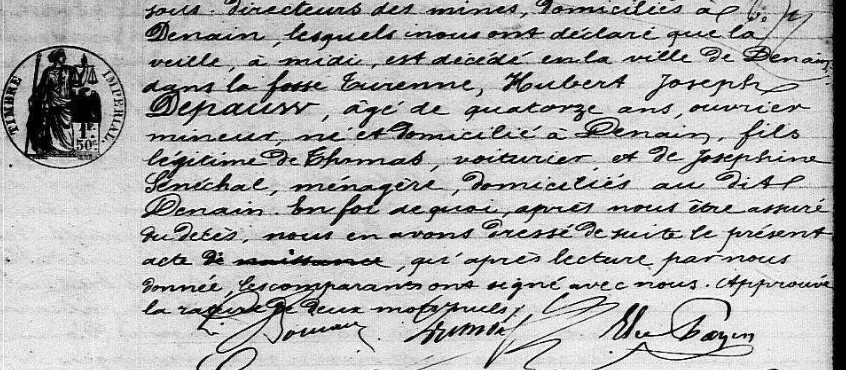 sous-directeurs des mines, domiciliés à
Denain, lesquels nous ont déclaré que la
veille, à midi, est décédé en la ville de Denain,
dans la fosse Turenne, Hubert Joseph
Depauw, âgé de quatorze ans, ouvrier
mineur, né et domicilié à Denain, fils
légitime de Thomas, voiturier et de Joséphine
Sénéchal, ménagère, domiciliés au dit
Denain. En foi de quoi, après nous être assuré
du décès, nous en avons dressé de suite le présent
acte de naissance, qu'après lecture par nous
donnée, les comparants ont signé avec nous. Approuvé
la rature de deux mots nuls.
TIMBRE IMPÉRIAL.
1F.
50C.